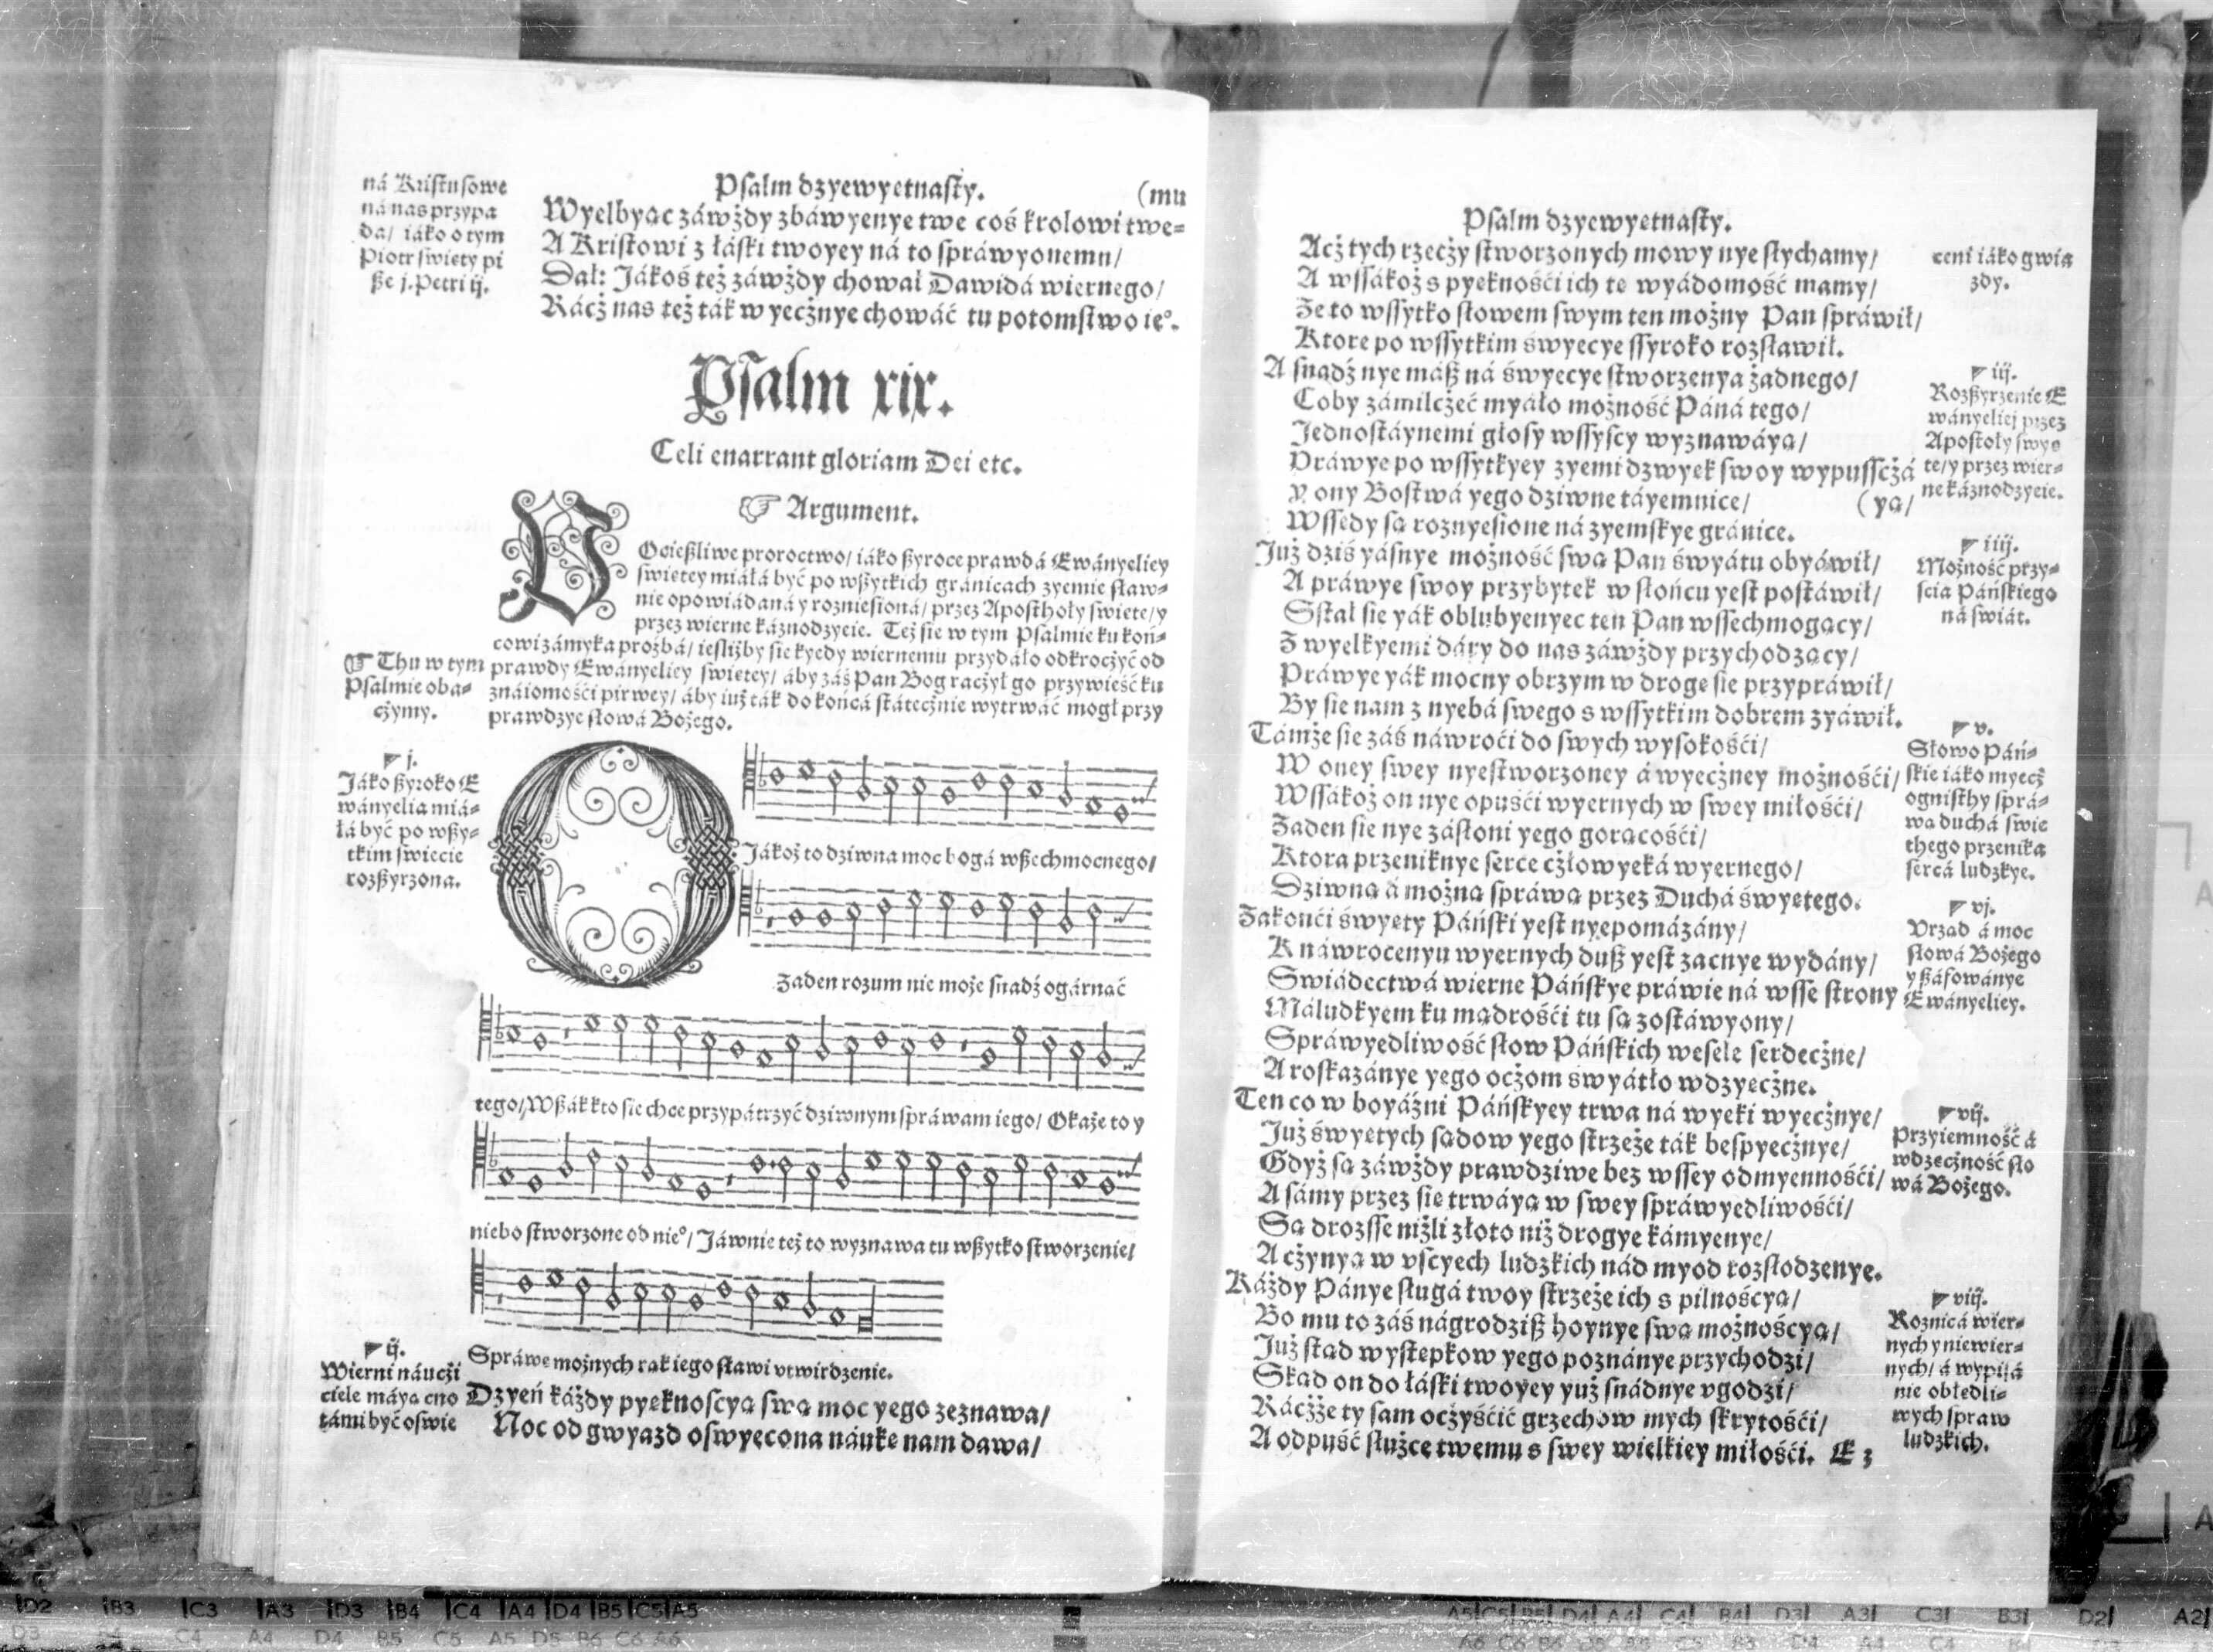 Psalm dzyewyetnasty.
(mu
Wyelbyąc záwżdy zbáwyenye twe coś krolowi twe=
A Kristowi z łáski twoyey ná to spráwyonemu/
Dał: Jákoś też záwżdy chował Dawidá wiernego/
Rácż nas też ták wyecżnye chowáć tu potomstwo ie°.
ná Kristusowe
ná nas przypa
da/ iáko o tym
Piotr swięty pi
ße j. Petri ij.
Psalm xix.
Celi enarrant gloriam Dei etc.
☞ Argument.
Ocießliwe proroctwo/ iáko ßyroce prawdá Ewányeliey
świętey miáłá być po wßytkich gránicach zyemie sław=
nie opowiádaná y rozniesioná/ przez Aposthoły swięte/ y
przez wierne káznodzyeie. Też się w tym Psalmie ku koń=
cowi zámyka proźbá/ iesliżby się kyedy wiernemu przydáło odkrocżyć od
prawdy Ewányeliey swiętey/ áby záś Pan Bog racżył go przywieść ku
známośći pirwey/ áby iuż ták do końcá státecżnie wytrwáć mogł przy
prawdzye słowá Bożego.
☞ Thu w tym
Psalmie oba=
cżymy.
j.
Jáko ßyroko E
wányelia miá=
łá być po wßy=
tkim swiecie
rozßyrzona.
Jákoż to dziwna moc bogá wßechmocnego/
Zaden rozum nie może snadź ogárnąć
tego/ Wßák kto się chce przypátrzyć dziwnym spráwam iego/ Okaże to y
niebo stworzone od nie°/ Jáwnie też to wyznawa tu wßytko stworzenie/
Spráwe możnych rąk iego sławi vtwirdzenie.
ij.
Wierni náucżi
ciele máyą cno
támi być oswie
Dzyeń káżdy pyęknoscyą swą moc yego zeznawa/
Noc od gwyazd oswyecona náukę nam dawa/
Psalm dzyewyetnasty.
Acż tych rzecży stworzonych mowy nye słychamy/
A wssákoż s pyęknośći ich tę wyádomość mamy/
Ze to wssytko słowem swym ten możny Pan spráwił/
Ktore po wssytkim świyecye ssyroko rozsławił.
A snadź nye máß ná świyecye stworzenya żadnego/
Coby zámilcżeć myáło możność Páná tego/
Jednostáynemi głosy wssyscy wyznawáyą/
Práwye po wssytkyey zyemi dzwyęk swoy wypusscżá
y ony Bostwá yego dziwne táyemnice/ (yą/
Wssędy są roznyesione ná zyemskye gránice.
Już dziś yásnye możność swą Pan świyátu obyáwił/
A práwye swoy przybytek w słońcu yest postáwił/
Sstał się yák oblubyenyec ten Pan wssechmogący/
Z wyelkyemi dáry do nas záwżdy przychodzący/
Práwye yák mocny obrzym w drogę się przypráwił/
By się nam z nyebá swego s wssytkim dobrem zyáwił.
Támże się záś náwroći do swych wysokośći/
W oney swey nyestworzoney á wyecżney możnośći/
Wssákoż on nye opuśći wyernych w swey miłośći/
Zaden się nye zásłoni yego gorącośći/
Ktora przeniknye serce cżłowyeká wyernego/
Dziwną á możną spráwą przez Duchá świyętego.
Zakonći świyęty Páński yest nyepomázány/
K náwrocenyu wyernych duß yest zacnye wydány/
Swiádectwá wierne Páńskye práwie ná wsse strony
Máludkyem ku mądrośći tu są zostáwyony/
Spráwyedliwość słow Páńskich wesele serdecżne/
A roskazánye yego ocżom świyátło wdzyecżne.
Ten co w boyáźni Páńskyey trwa ná wyeki wyecżnye/
Już świyętych sądow yego strzeże ták bespyecżnye/
Gdyż są záwżdy prawdziwe bez wssey odmyennośći/
A sámy przez się trwáyą w swey spráwyedliwośći/
Są drozsse niżli złoto niż drogye kámyenye/
A cżynyą w vscyech ludzkich nád myod rozsłodzenye.
Káżdy Pánye sługá twoy strzeże ich s pilnoscyą/
Bo mu to záś nágrodziß hoynye swą możnoscyą/
Już stąd występkow yego poznánye przychodzi/
Skąd on do łáski twoyey yuż snádnye vgodzi/
Rácżże ty sam ocżyśćić grzechow mych skrytośći/
A odpuść służce twemu s swey wielkiey miłośći. E 3
ceni iáko gwia
zdy.
iij.
Rozßyrzenie E
wányeliej przez
Apostoły swyę
te/ y przez wier=
ne káznodzyeie.
iiij.
Możność przy=
ścia Páńskiego
ná swiát.
v.
Słowo Páń=
skie iáko myecż
ognisthy sprá=
wą duchá swię
thego przenika
sercá ludzkye.
vj.
Vrząd á moc
słowá Bożego
y ßáfowánye
Ewányeliey.
vij.
Przyiemność á
wdzecżność sło
wá Bożego.
viij.
Roznicá wier=
nych y niewier=
nych/ á wypijá
nie obłędli=
wych spraw
ludzkich.